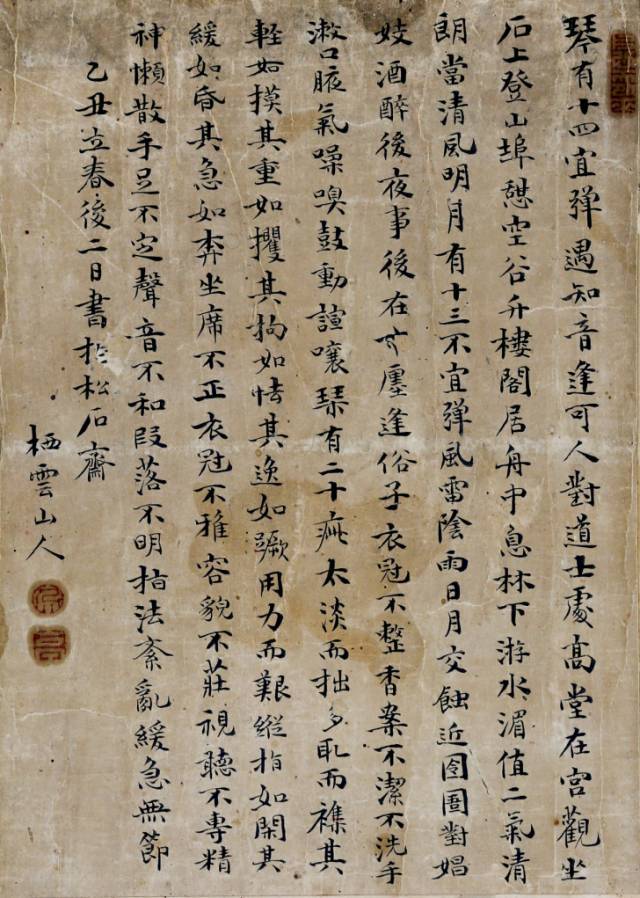 琴有十四宜弹遇知音逢可人對道士處高堂在宮觀坐
石上登山埠憩空谷升樓閣居舟中息林下游水湄值二氣清
朗當清風明月有十三不宜弹風雷陰雨日月交蝕近囹圄對娼
妓酒醉後夜事後在廛逢俗子衣冠不整香案不潔不洗手
漱口腋氣噪嗅鼓動諠嚷琹有二十疵太淡而拙多取而襍其
輕如摸其重如攫其拘如怯其逸如蹶用力而艱縱指如閑其
緩如昏其急如奔坐席不正衣冠不雅容貌不莊視聽不專精
神懶散手足不定聲音不和段落不明指法紊亂緩急無節
乙丑立春後二日書於松石齋
栖雲山人